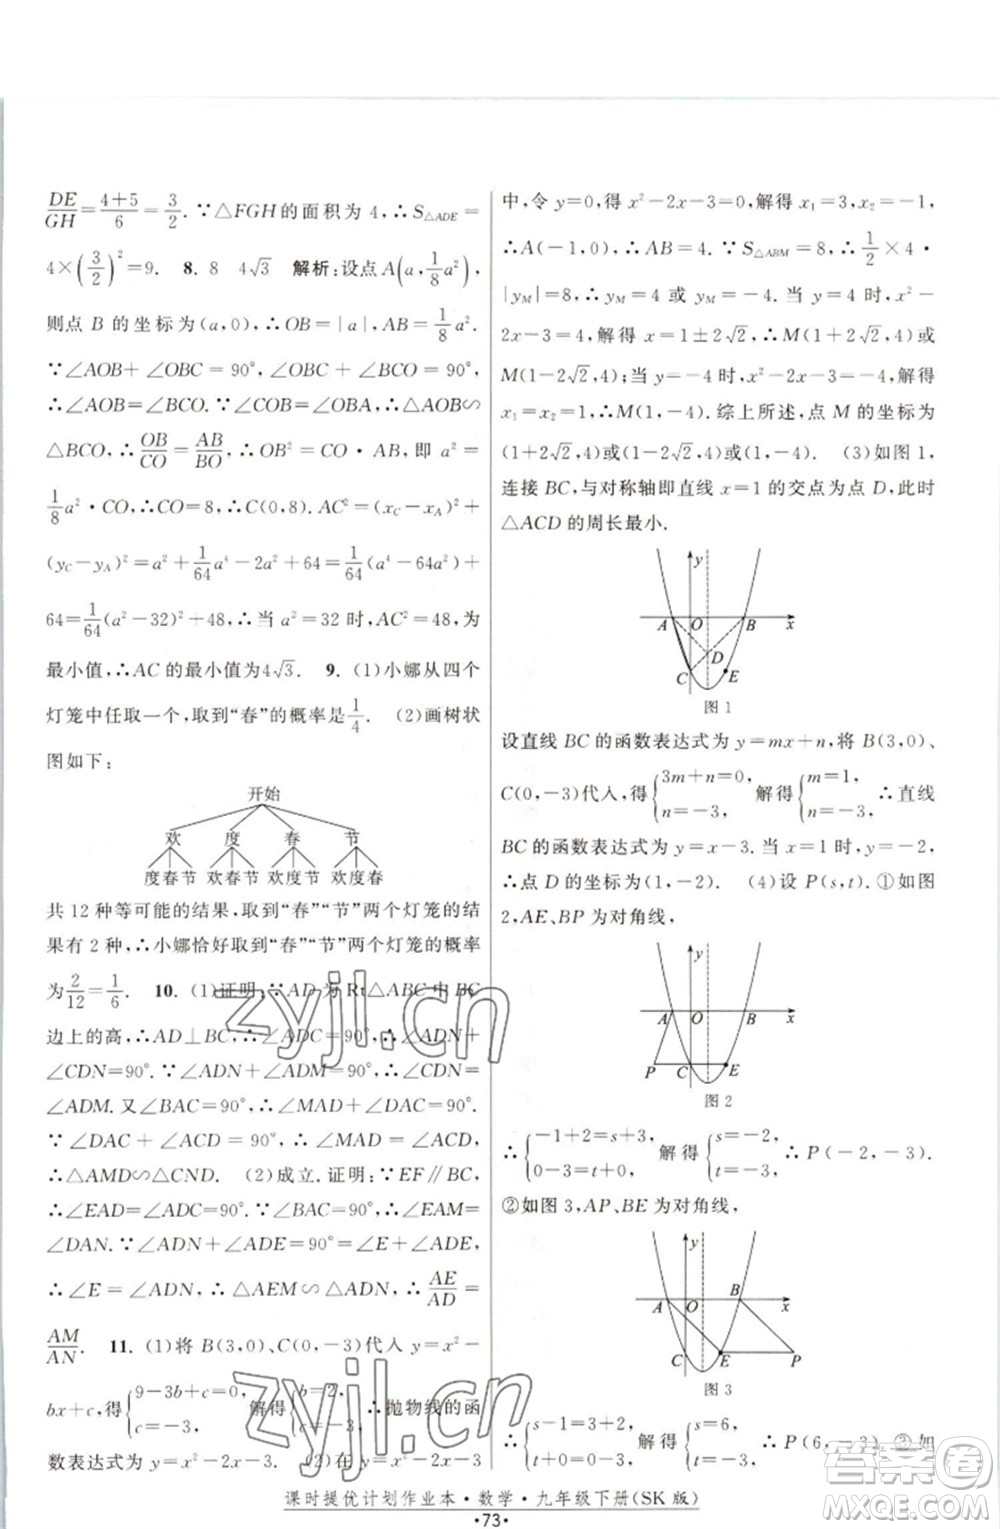 DE/GH=(4+5)/6=3/2. ∵△FGH的面积为 4,∴S△ADE=
4×(3/2)²=9. 8. 8 4√3 解析:设点 A(a,1/8a²),
则点 B 的坐标为(a,0),∴OB=|a|,AB=1/8a².
∵∠AOB+∠OBC=90°,∠OBC+∠BCO=90°,
∴∠AOB=∠BCO.∵∠COB=∠OBA,∴△AOB∽
△BCO,∴OB/CO=AB/BO,∴OB²=CO·AB,即 a²=
1/8a²·CO,∴CO=8,∴C(0,8).AC²=(xC-xA)²+
(yC-yA)²=a²+1/64a⁴-2a²+64=1/64a⁴-a²+
64=1/64(a²-32)²+48,∴当 a²=32 时,AC²=48,为
最小值,∴AC 的最小值为4√3. 9. (1)小娜从四个
灯笼中任取一个,取到“春”的概率是1/4. (2)画树状
图如下:
开始
欢 度 春 节
度春节 欢春节 欢度节 欢度春
共 12 种等可能的结果,取到“春”“节”两个灯笼的结
果有 2 种,∴小娜恰好取到“春”“节”两个灯笼的概率
为2/12=1/6. 10. (1)证明:∵AD 为 Rt△ABC 中 BC
边上的高,∴AD⊥BC,∴∠ADC=90°,∴∠ADN+
∠CDN=90°.∵∠ADM+∠ADN=90°,∴∠CDN=
∠ADM.又∠BAC=90°,∴∠MAD+∠DAC=90°.
∵∠DAC+∠ACD=90°,∴∠MAD=∠ACD,
∴△AMD∽△CND. (2)成立.证明:∵EF∥BC,
∴∠EAD=∠ADC=90°.∵∠BAC=90°,∴∠EAM=
∠DAN.∵∠ADN+∠ADE=90°,∠E+∠ADE=90°,
∴∠E=∠ADN,∴△AEM∽△ADN,∴AE/AD=
AM/AN. 11. (1)将 B(3,0)、C(0,-3)代入 y=x²-
bx+c,得{9-3b+c=0, c=-3, 解得{b=2, c=-3, ∴抛物线的函
数表达式为 y=x²-2x-3. (2)在 y=x²-2x-3
中,令 y=0,得 x²-2x-3=0,解得 x₁=3,x₂=-1,
∴A(-1,0),∴AB=4.∵S△ABM=8,∴1/2×4·
|yM|=8,∴yM=4 或 yM=-4. 当 y=4 时,x²-
2x-3=4,解得 x=1±2√2,∴M(1+2√2,4)或
M(1-2√2,4);当 y=-4 时,x²-2x-3=-4,解得
x₁=x₂=1,∴M(1,-4).综上所述,点 M 的坐标为
(1+2√2,4)或(1-2√2,4)或(1,-4). (3)如图 1,
连接 BC,与对称轴即直线 x=1 的交点为点 D,此时
△ACD 的周长最小.
y
A O B x
D
C E
图 1
设直线 BC 的函数表达式为 y=mx+n,将 B(3,0)、
C(0,-3)代入,得{3m+n=0, n=-3, 解得{m=1, n=-3, ∴直线
BC 的函数表达式为 y=x-3. 当 x=1 时,y=-2,
∴点 D 的坐标为(1,-2). (4)设 P(s,t).①如图
2,AE、BP 为对角线,
y
A O B x
P C E
图 2
∴{-1+2=s+3, 0-3=t+0, 解得{s=-2, t=-3, ∴P(-2,-3).
②如图 3,AP、BE 为对角线,
y
A O B x
C E P
图 3
∴{s-1=2+3, t+0=-3+0, 解得{s=6, t=-3, ∴P(6,-3).③如
课时提优计划作业本·数学·九年级下册(SK 版)
·73·
zyjl.cn
zyjl.cn
答案圈
MXQE.COM